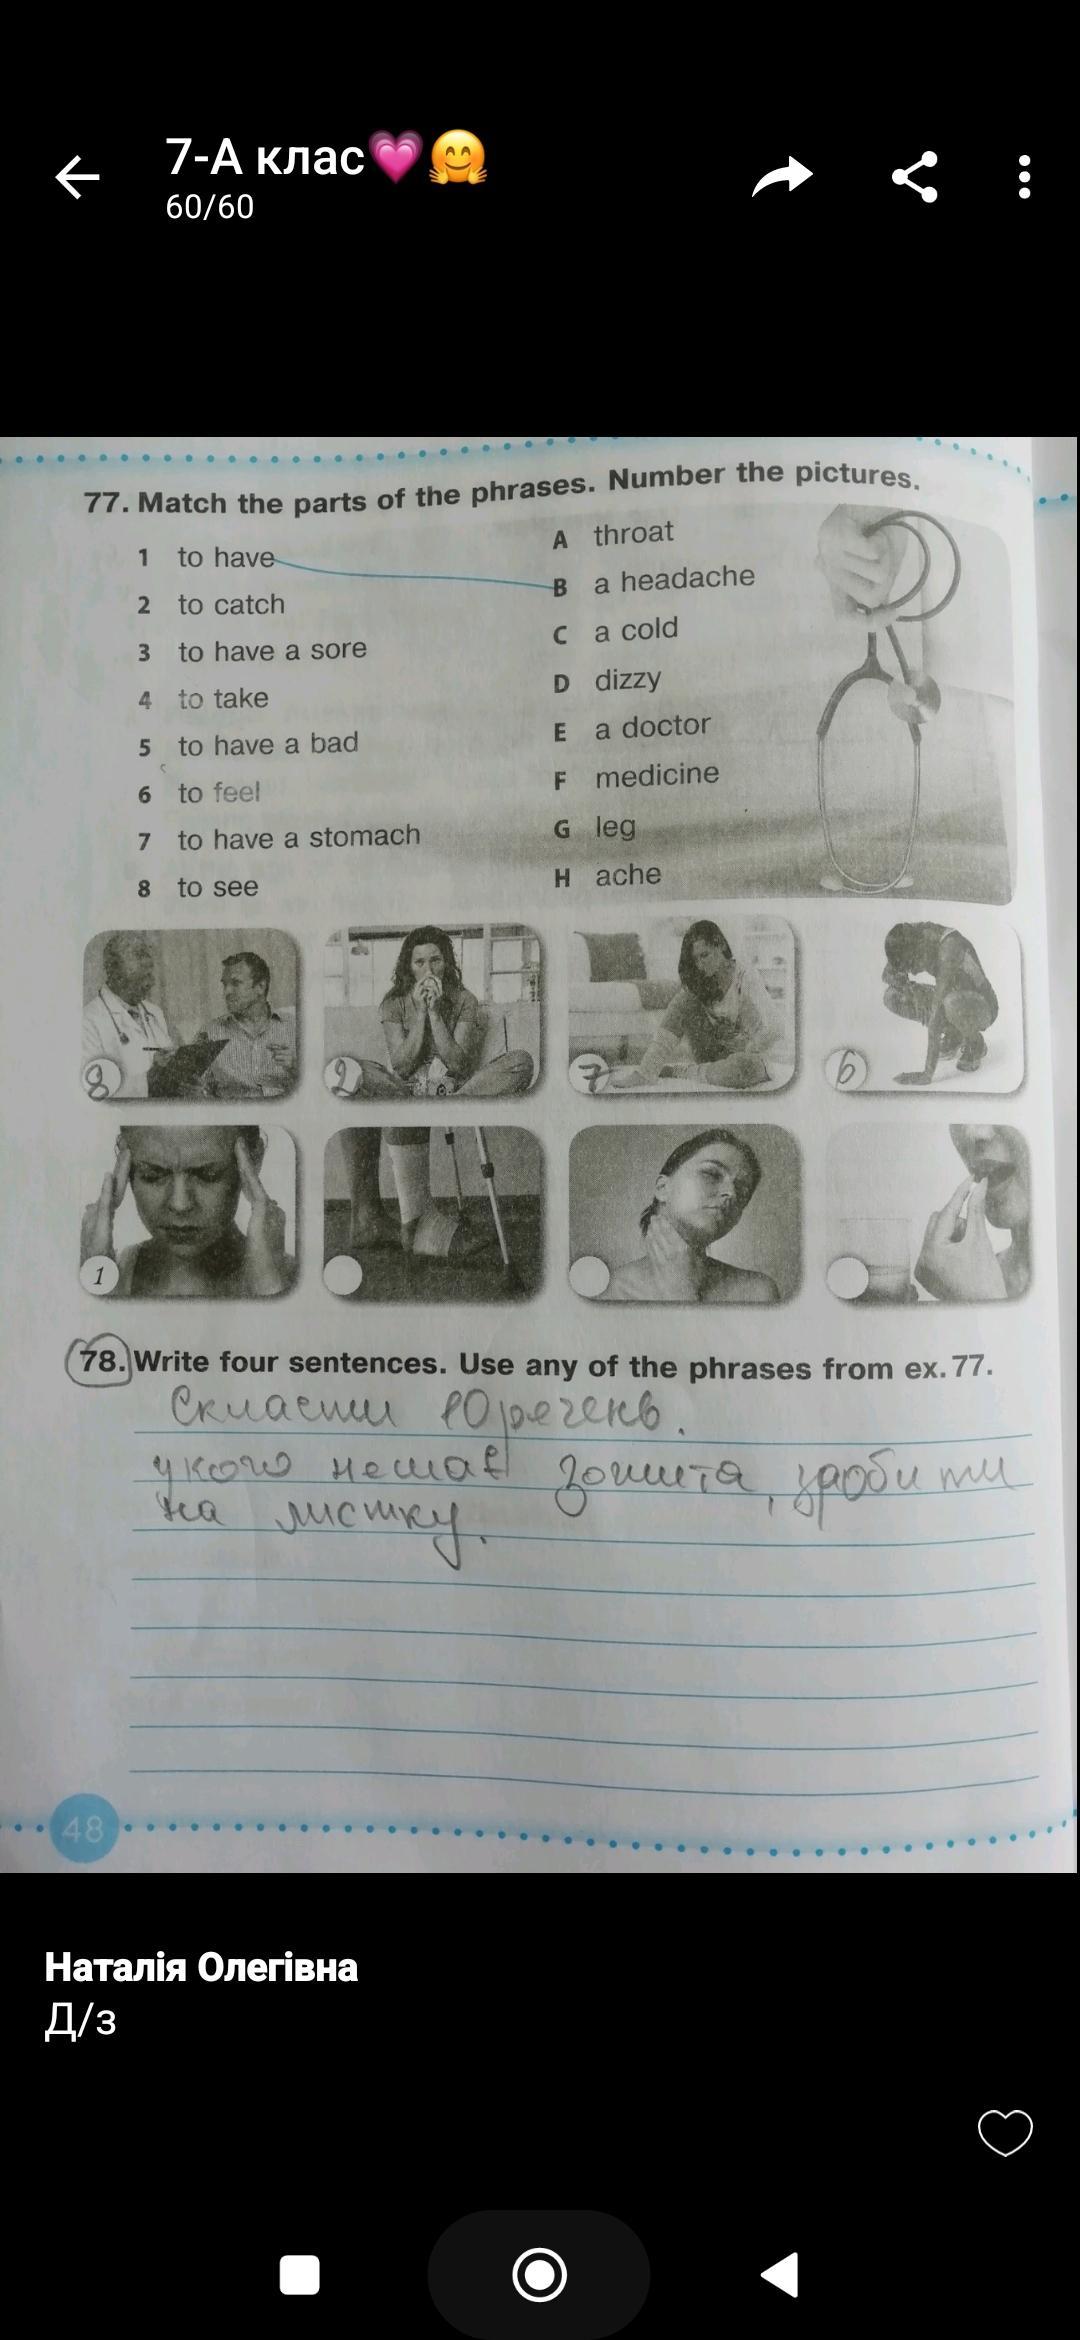 7-А клас💗🤗
60/60
77. Match the parts of the phrases. Number the pictures.
1 to have
2 to catch
3 to have a sore
4 to take
5 to have a bad
6 to feel
7 to have a stomach
8 to see
A throat
B a headache
C a cold
D dizzy
E a doctor
F medicine
G leg
H ache
8
2
7
6
1
78. Write four sentences. Use any of the phrases from ex. 77.
Скласти 10речень.
у кого немає зошита, зробити
на листку.
48
Наталія Олегівна
Д/з